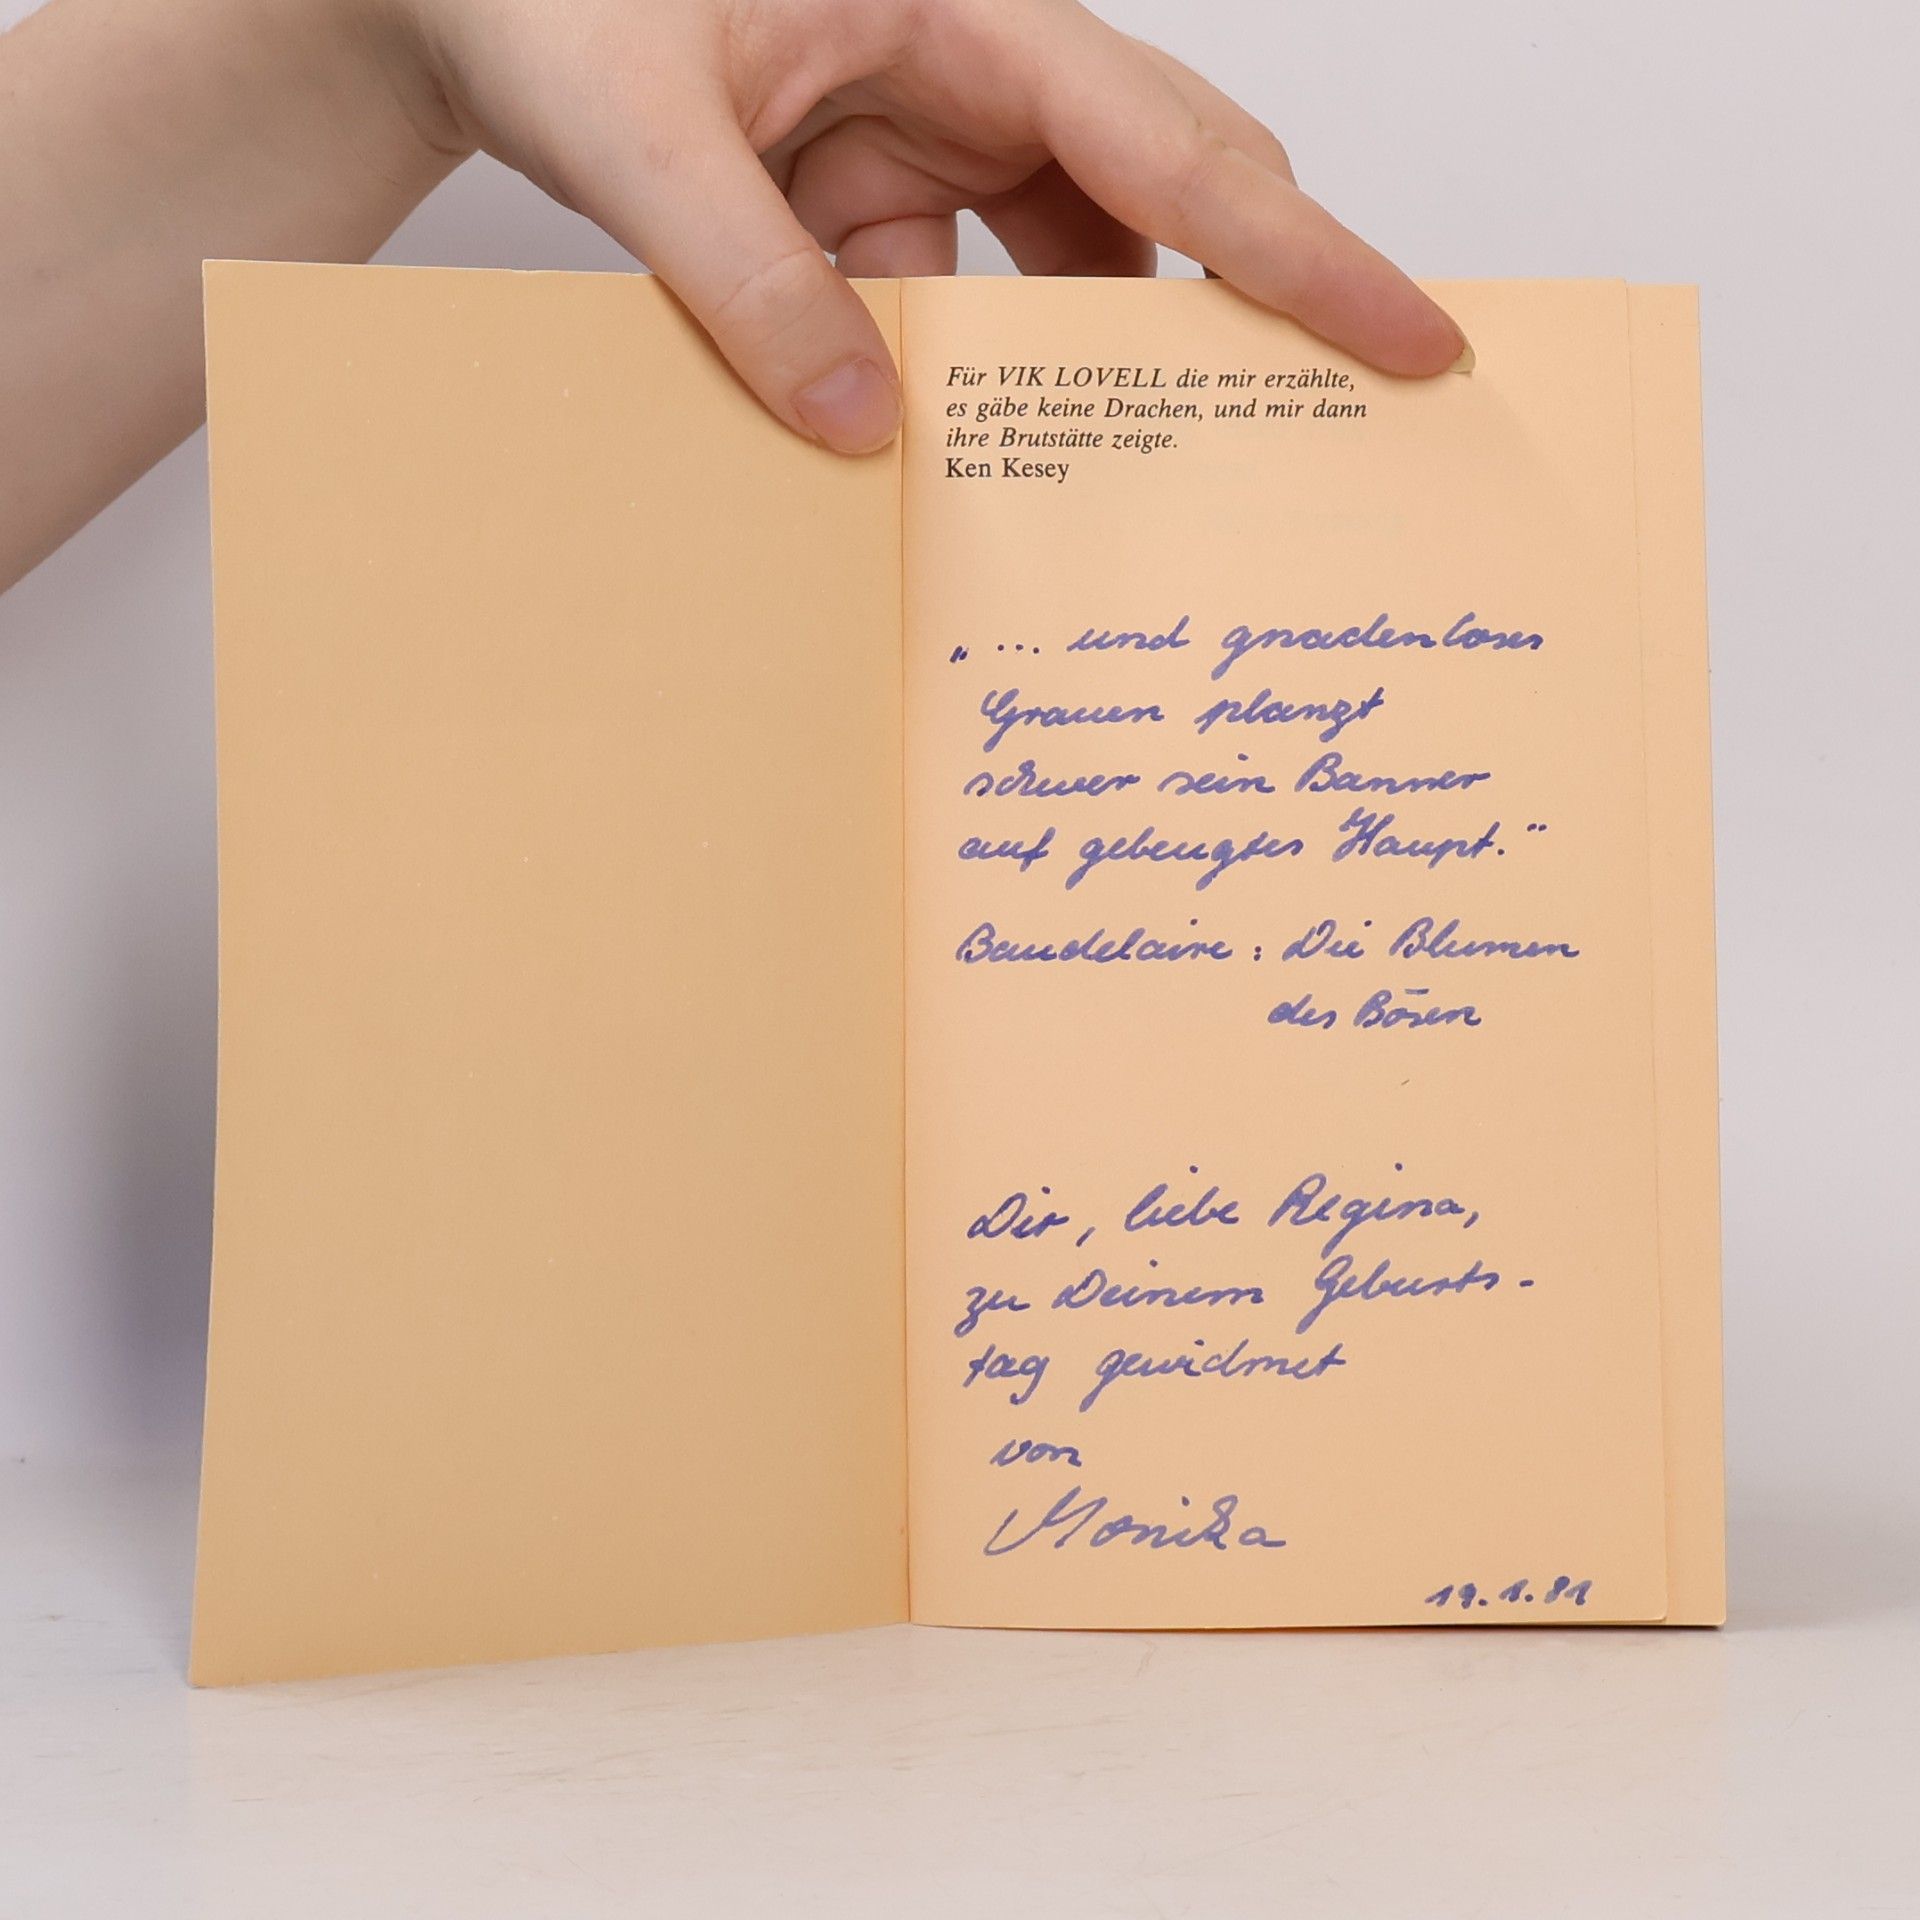 Für VIK LOVELL die mir erzählte,
es gäbe keine Drachen, und mir dann
ihre Brutstätte zeigte.
Ken Kesey
„ ... und gnadenloses
Grauen planzt
schwer sein Banner
auf gebeugtes Haupt."
Baudelaire : Die Blumen
des Bösen
Dir, liebe Regina,
zu Deinem Geburts-
tag gewidmet
von
Monika
19.1.81